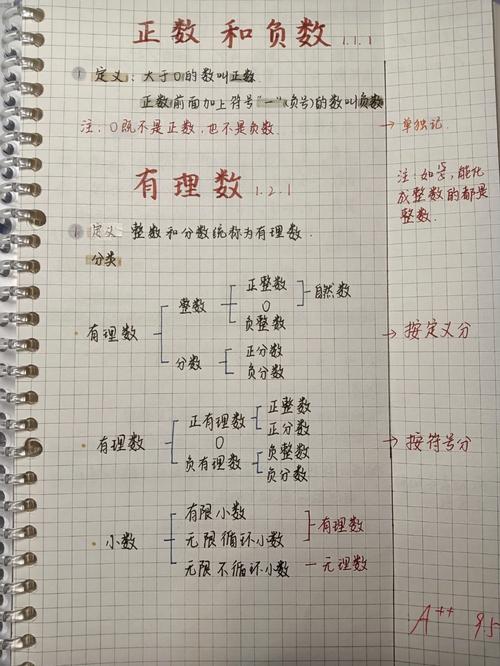 正数 和负数 1.1.1
① 定义：大于0的数叫正数.
正数前面加上符号"一"(负号)的数叫负数
注：0既不是正数，也不是负数.
→ 单独记.
有理数 1.2.1
注：如,能化
成整数的都是
整数.
① 定义 整数和分数统称为有理数.
分类
有理数
整数
正整数
0
负整数
自然数
分数
正分数
负分数
→ 按定义分
有理数
正有理数
正整数
正分数
0
负有理数
负整数
负分数
→ 按符号分
小数
有限小数
无限循环小数
有理数
无限不循环小数 一 无理数
A++ 95